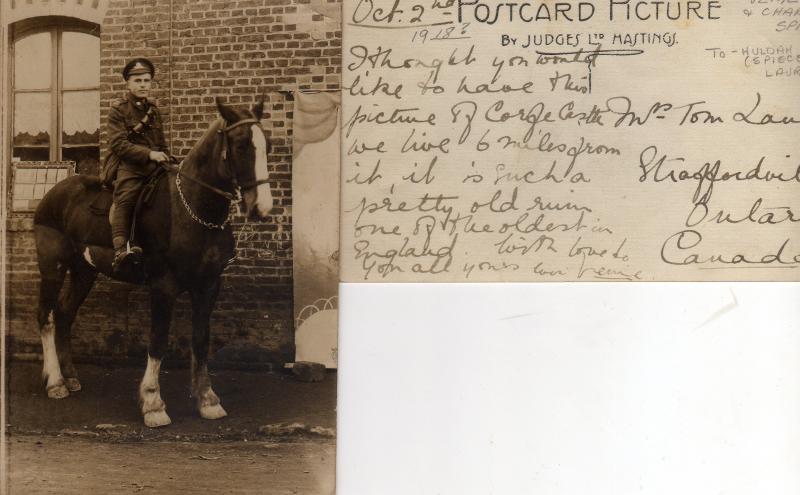 Oct. 2nd
1918?
POSTCARD PICTURE
BY JUDGES LTD HASTINGS.
& CHAR
TO - HULDAH
(SPIECE
LAUR
I thought you would
like to have this
picture of Corfe Castle
we live 6 miles from
it, it is such a
pretty old ruin
one of the oldest in
England. With love to
you all yours
Mrs Tom Lau
Straffordvil
Ontar
Canada